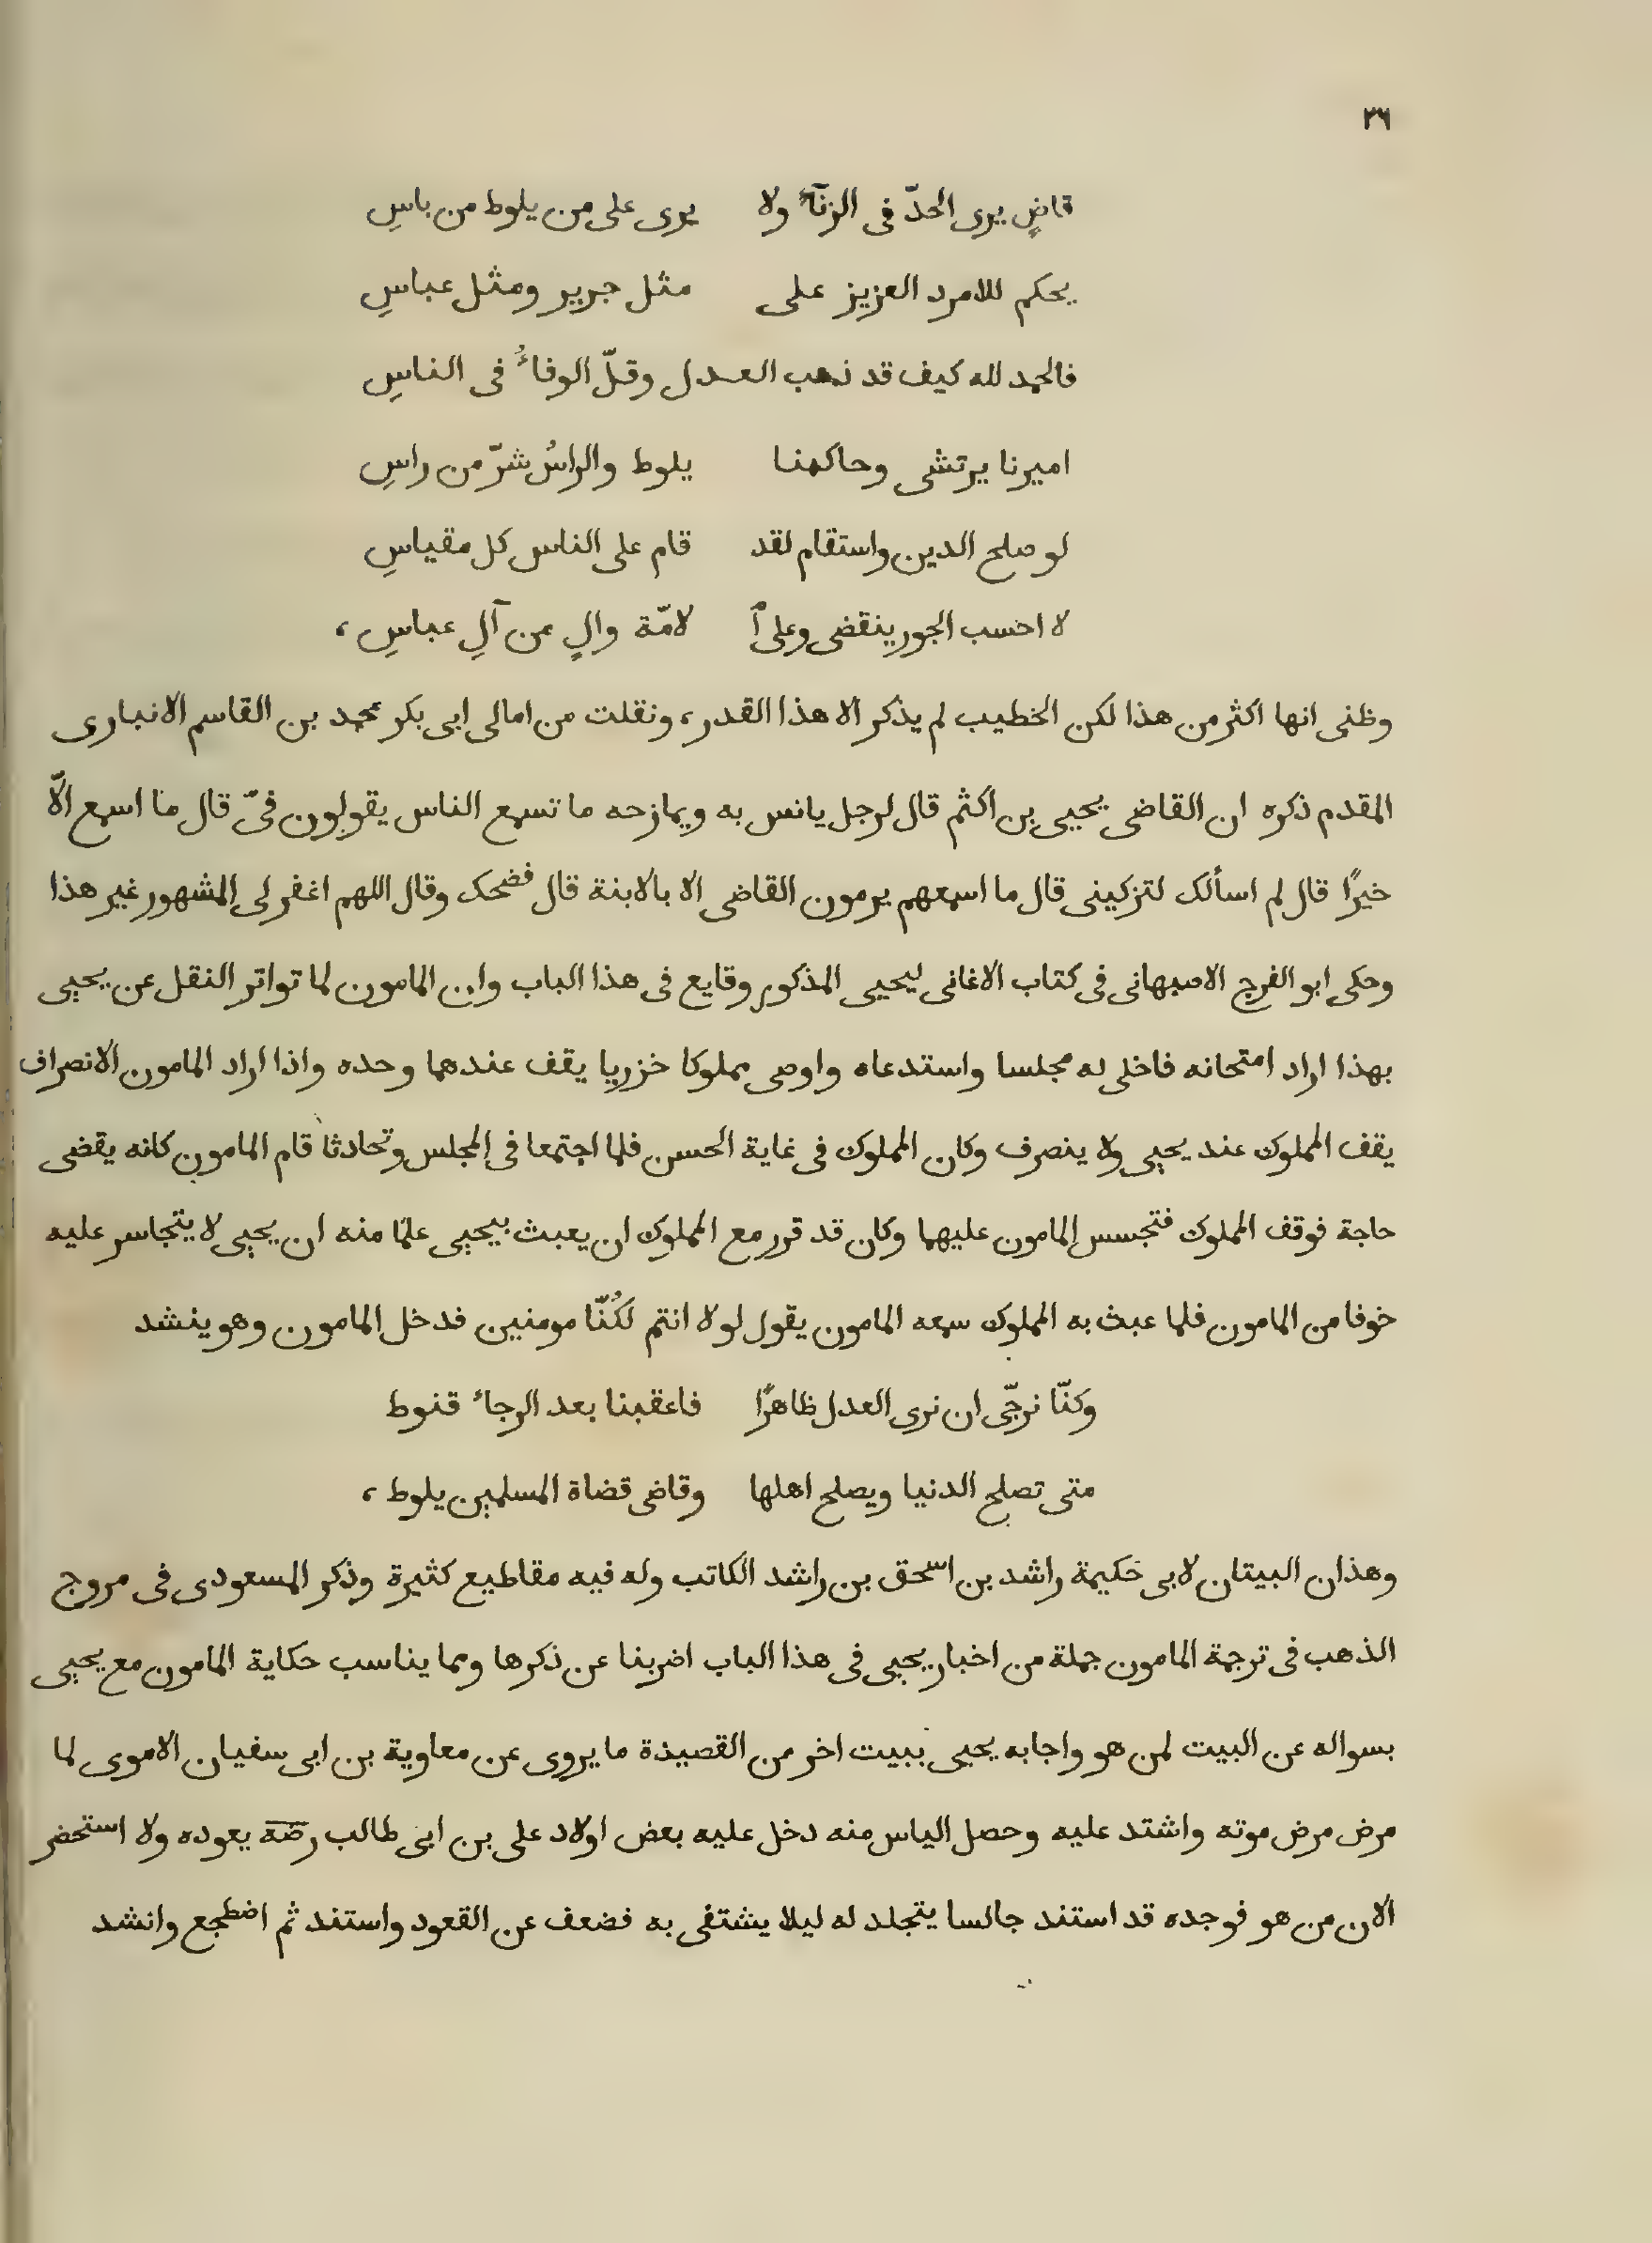 ٣٦
قاضٍ يرى الحدّ فى الزنآء ولا يرى على من يلوط من باسِ
يحكم للامرد العزيز على مثل جرير ومثل عباسِ
فالحمد لله كيف قد ذهب العدل وقلّ الوفاءُ فى الناسِ
اميرنا يرتشى وحاكمنا يلوط والراسُ شرّ من راسِ
لو صلح الدين واستقام لقد قام على الناس كل مقياسِ
لا احسب الجور ينقضى وعلى ٱ لامّة والٍ من آلِ عباسِ،
وظنى انها اكثر من هذا لكن الخطيب لم يذكر الا هذا القدر، ونقلت من امالى ابى بكر محمد بن القاسم الانبارى
المقدم ذكره ان القاضى يحيى بن اكثم قال لرجل يانس به ويمازحه ما تسمع الناس يقولون فىّ قال ما اسمع الّا
خيرًا قال لم اسألك لتزكينى قال ما اسمعهم يرمون القاضى الا بالابنة قال فضحك وقال اللهم اغفر لى المشهور غير هذا
وحكى ابو الفرج الاصبهانى فى كتاب الاغانى ليحيى المذكور وقايع فى هذا الباب وان المامون لما تواتر النقل عن يحيى
بهذا اراد امتحانه فاخلى له مجلسا واستدعاه واوصى مملوكا خزريا يقف عندهما وحده واذا اراد المامون الانصراف
يقف المملوك عند يحيى ولا ينصرف وكان المملوك فى غاية الحسن فلما اجتمعا فى المجلس وتحادثا قام المامون كانه يقضى
حاجة فوقف المملوك فتجسس المامون عليهما وكان قد قرر مع المملوك ان يعبث بيحيى علمًا منه ان يحيى لا يتجاسر عليه
خوفا من المامون فلما عبث به المملوك سمعه المامون يقول لولا انتم لكُنّا مومنين فدخل المامون وهو ينشد
وكنّا نرجّى ان نرى العدل ظاهرًا فاعقبنا بعد الرجاء قنوط
متى تصلح الدنيا ويصلح اهلها وقاضى قضاة المسلمين يلوط،
وهذان البيتان لابى حكيمة راشد بن اسحق بن راشد الكاتب وله فيه مقاطيع كثيرة وذكر المسعودى فى مروج
الذهب فى ترجمة المامون جملة من اخبار يحيى فى هذا الباب اضربنا عن ذكرها ومما يناسب حكاية المامون مع يحيى
بسواله عن البيت لمن هو واجابه يحيى ببيت اخر من القصيدة ما يروى عن معاوية بن ابى سفيان الاموى لما
مرض مرض موته واشتد عليه وحصل الياس منه دخل عليه بعض اولاد على بن ابى طالب رضه يعوده ولا استحضر
الان من هو فوجده قد استند جالسا يتجلد له ليلا يشتفى به فضعف عن القعود واستند ثم اضطجع وانشد